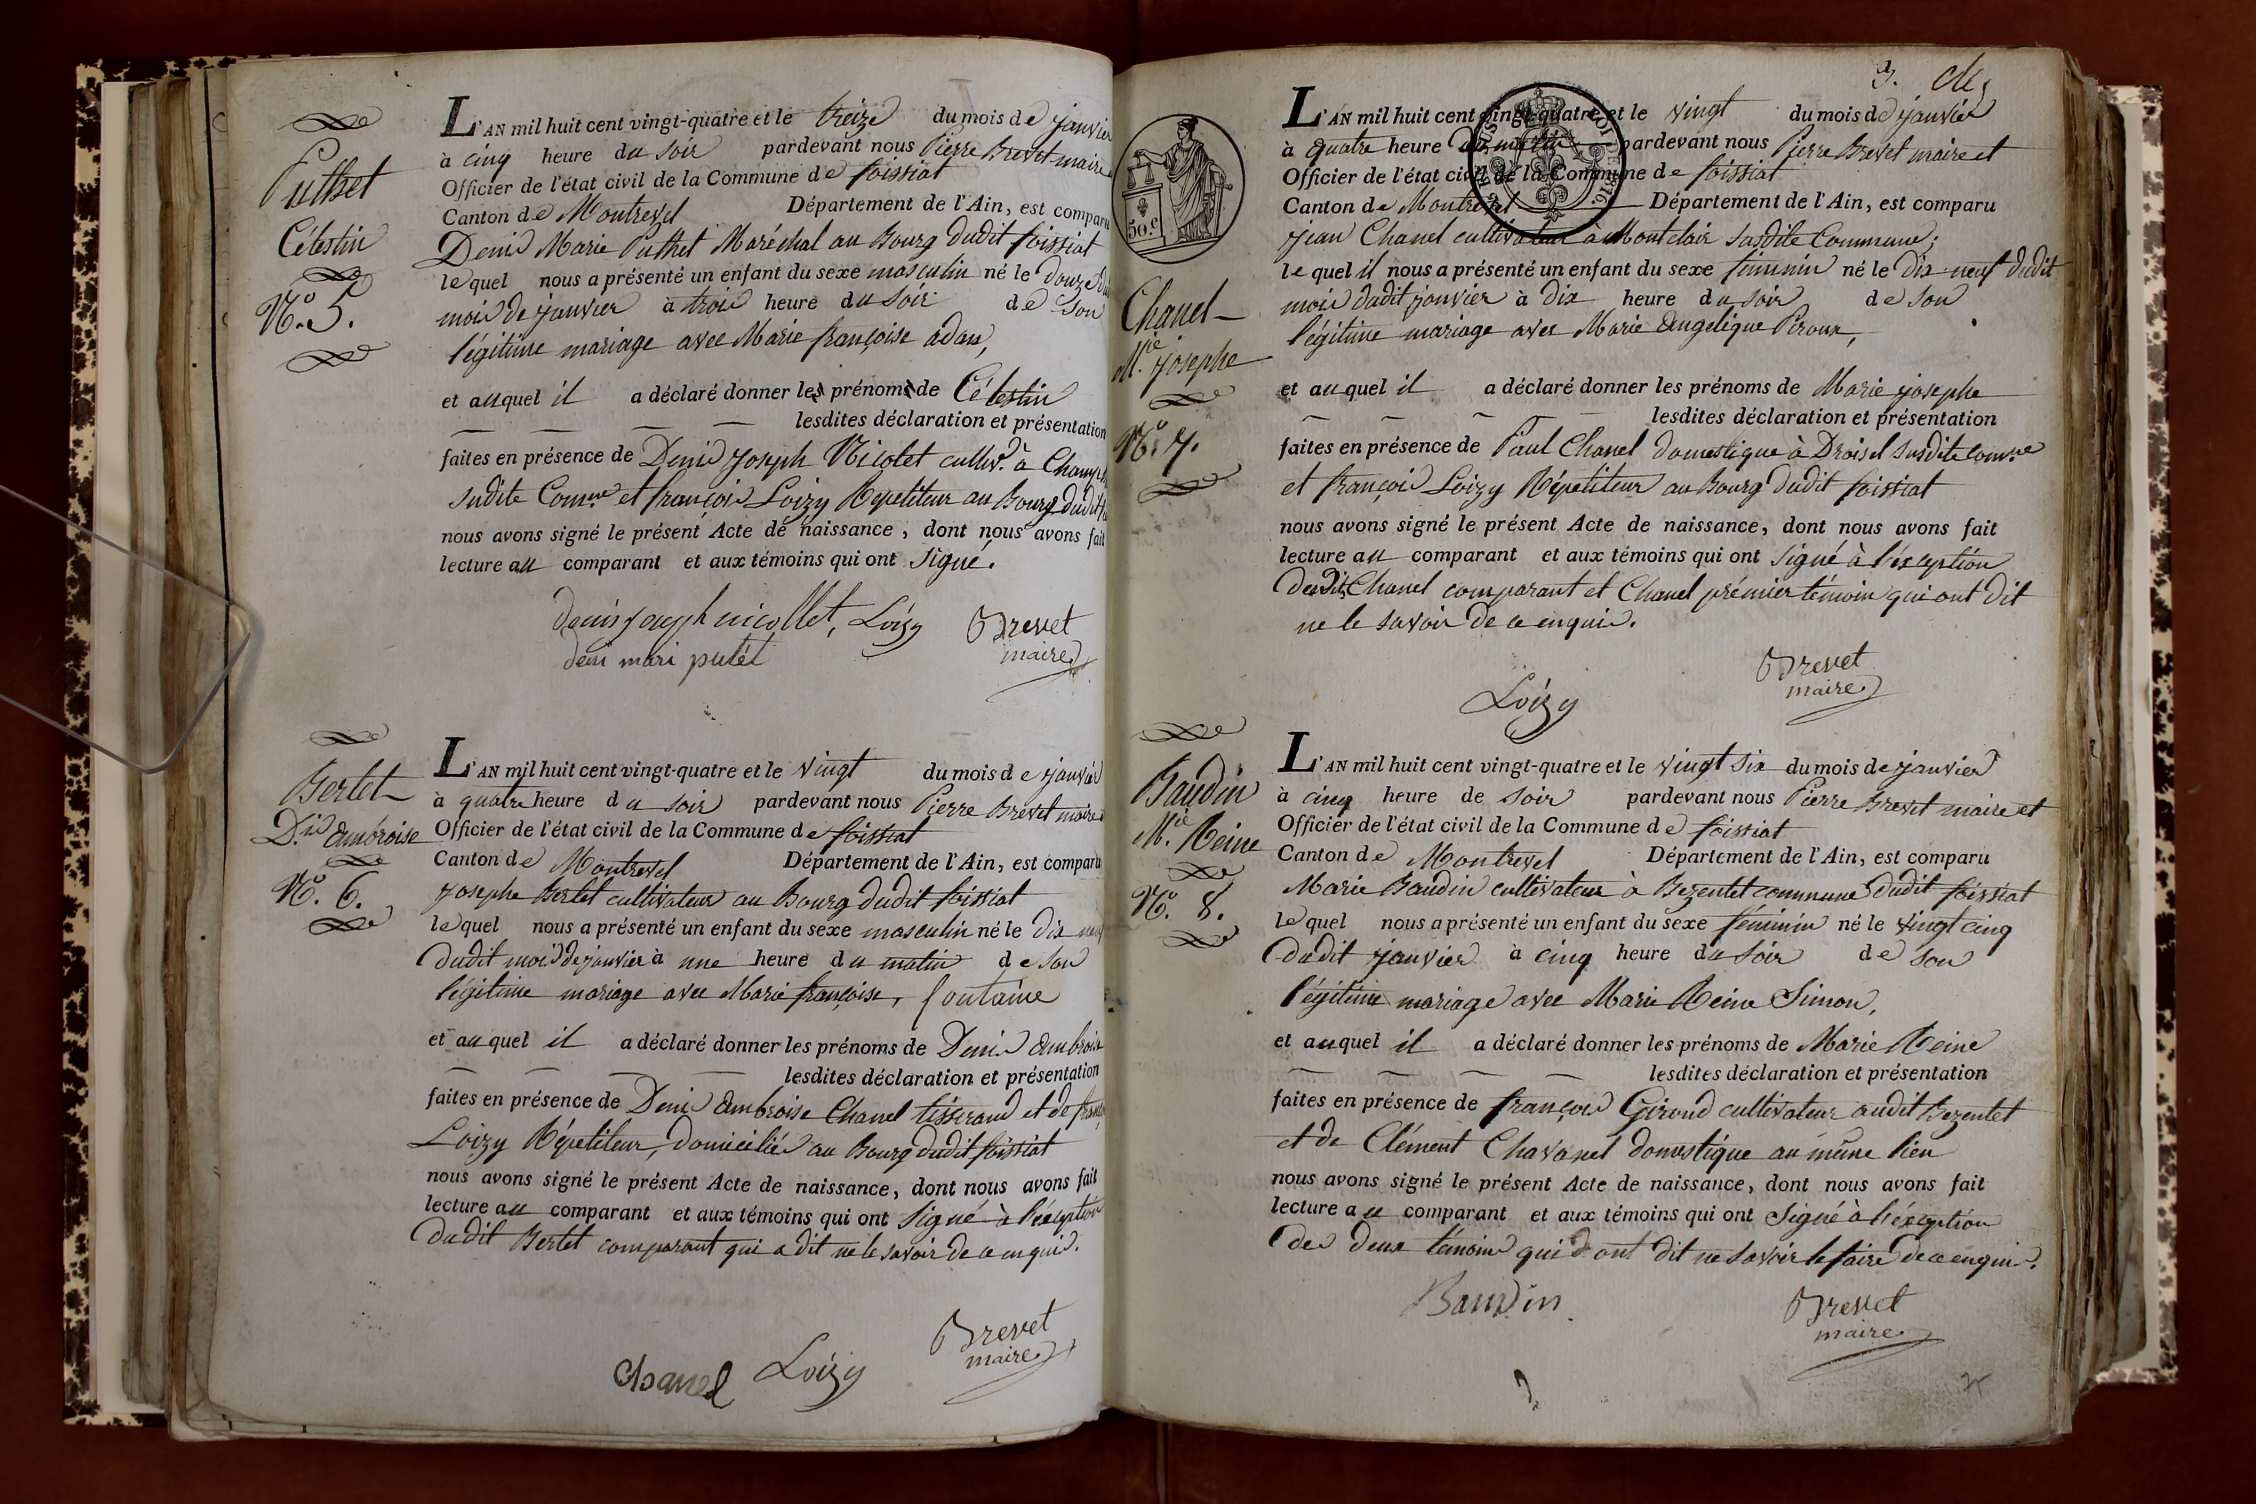 Puthet
Célestin
N.º 5.
L'AN mil huit cent vingt-quatre et le treize du mois de janvier
à cinq heure du soir pardevant nous Pierre Brevet maire
Officier de l'état civil de la Commune de foissiat
Canton de Montrevel Département de l'Ain, est comparu
Denis Marie Puthet Maréchal au Bourg dudit foissiat
lequel nous a présenté un enfant du sexe masculin né le douze du
mois de janvier à trois heure du soir de son
légitime mariage avec Marie françoise adam,
et auquel il a déclaré donner les prénoms de Célestin
lesdites déclaration et présentation
faites en présence de Denis Joseph Nicolet cultiv.r à
sudite Com.ne et françois Loizy Répetiteur au Bourg dudit
nous avons signé le présent Acte de naissance, dont nous avons fait
lecture au comparant et aux témoins qui ont signé.
denis joseph nicollet, Loizy Brevet
deni mari putet maire
Bertet
D.is ambroise
N.º 6.
L'AN mil huit cent vingt-quatre et le vingt du mois de janvier
à quatre heure du soir pardevant nous Pierre Brevet maire
Officier de l'état civil de la Commune de foissiat
Canton de Montrevel Département de l'Ain, est comparu
Josephe Bertet cultivateur au Bourg dudit foissiat
lequel nous a présenté un enfant du sexe masculin né le dix neuf
dudit mois de janvier à une heure du matin de son
légitime mariage avec Marie françoise, fontaine
et auquel il a déclaré donner les prénoms de Denis ambroise
lesdites déclaration et présentation
faites en présence de Denis ambroise Chanel tisserand et de
Loizy Répetiteur, domiciliés au Bourg dudit foissiat
nous avons signé le présent Acte de naissance, dont nous avons fait
lecture au comparant et aux témoins qui ont signé à l'éxception
dudit Bertet comparant qui a dit ne le savoir de ce enquis.
Chanel Loizy Brevet
maire
3.
50.c
Chanel
M.ie josephe
N.º 7.
L'AN mil huit cent vingt-quatre et le vingt du mois de janvier
à quatre heure du pardevant nous Pierre Brevet maire et
Officier de l'état civil de la Commune de foissiat
Canton de Montrevel Département de l'Ain, est comparu
Jean Chanel cultivateur à Montclair susdite Commune;
lequel il nous a présenté un enfant du sexe féminin né le dix neuf dudit
mois dudit janvier à dix heure du soir de son
légitime mariage avec Marie angelique Piroux,
et auquel il a déclaré donner les prénoms de Marie josephe
lesdites déclaration et présentation
faites en présence de Paul Chanel domestique à Droisel susdite Comm.e
et françois Loizy Répetiteur au Bourg dudit foissiat
nous avons signé le présent Acte de naissance, dont nous avons fait
lecture au comparant et aux témoins qui ont signé à l'éxception
dudit Chanel comparant et Chanel prémier témoin qui ont dit
ne le savoir de ce enquis.
Brevet
maire
Loizy
Baudin
M.ie Reine
N.º 8.
L'AN mil huit cent vingt-quatre et le vingt six du mois de janvier
à cinq heure de soir pardevant nous Pierre Brevet maire et
Officier de l'état civil de la Commune de foissiat
Canton de Montrevel Département de l'Ain, est comparu
Marie Baudin cultivateur à Bezentet commune dudit foissiat
lequel nous a présenté un enfant du sexe féminin né le vingt cinq
dudit janvier à cinq heure du soir de son
légitime mariage avec Marie Reine Simon,
et auquel il a déclaré donner les prénoms de Marie Reine
lesdites déclaration et présentation
faites en présence de françois Giroud cultivateur audit Bezentet
et de Clément Chavanel domestique au même lieu
nous avons signé le présent Acte de naissance, dont nous avons fait
lecture au comparant et aux témoins qui ont signé à l'éxception
des deux témoins qui ont dit ne savoir le faire de ce enquis.
Baudin Brevet
maire